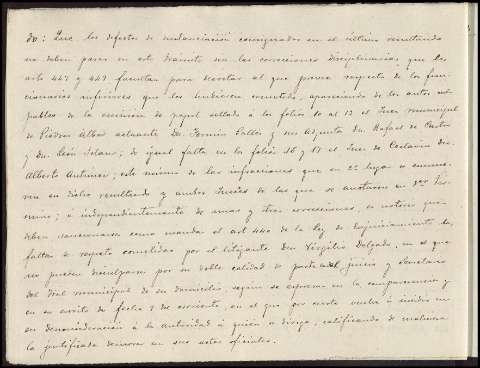 do: Que los defectos de sustanciación consignados en el último resultando
no deben pasar en este trámite sin las correcciones disciplinarias, que los
arts 447 y 449 facultan para decretar al que provee respecto de los fun-
cionarios inferiores que los hubieren cometido, apareciendo de los autos cul-
pables de la omisión de papel sellado á los folios 10 al 12 el Juez municipal
de Piedras Albas actuante Dn. Fermín Salles y su Adjunto Dn. Rafael de Castro
y Dn. León Solano; de igual falta en los folios 16 y 17 el Juez de Ceclavín Dn.
Alberto Antúnez; este mismo de las infracciones que en 2º lugar se enume-
ran en dicho resultando y ambos Jueces de las que se anotaron en 3er tér-
mino; é independientemente de unas y otras correcciones, es notorio que
deben sancionarse como mandar el art 440 de la ley de Enjuiciamiento las
faltas de respeto cometidas por el litigante Dn Virgilio Delgado, en el que
no pueden disculparse por su doble calidad de parte en el juicio y Secretario
del Tral municipal de su domicilio, según se expresa en la comparecencia y
en su escrito de fecha 7 del corriente, en el que por cierto vuelve á incidir en
su desconsideración á la autoridad á quien se dirige, calificando de maliciosa
la justificada demora en sus actos oficiales.